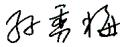 孙秀梅